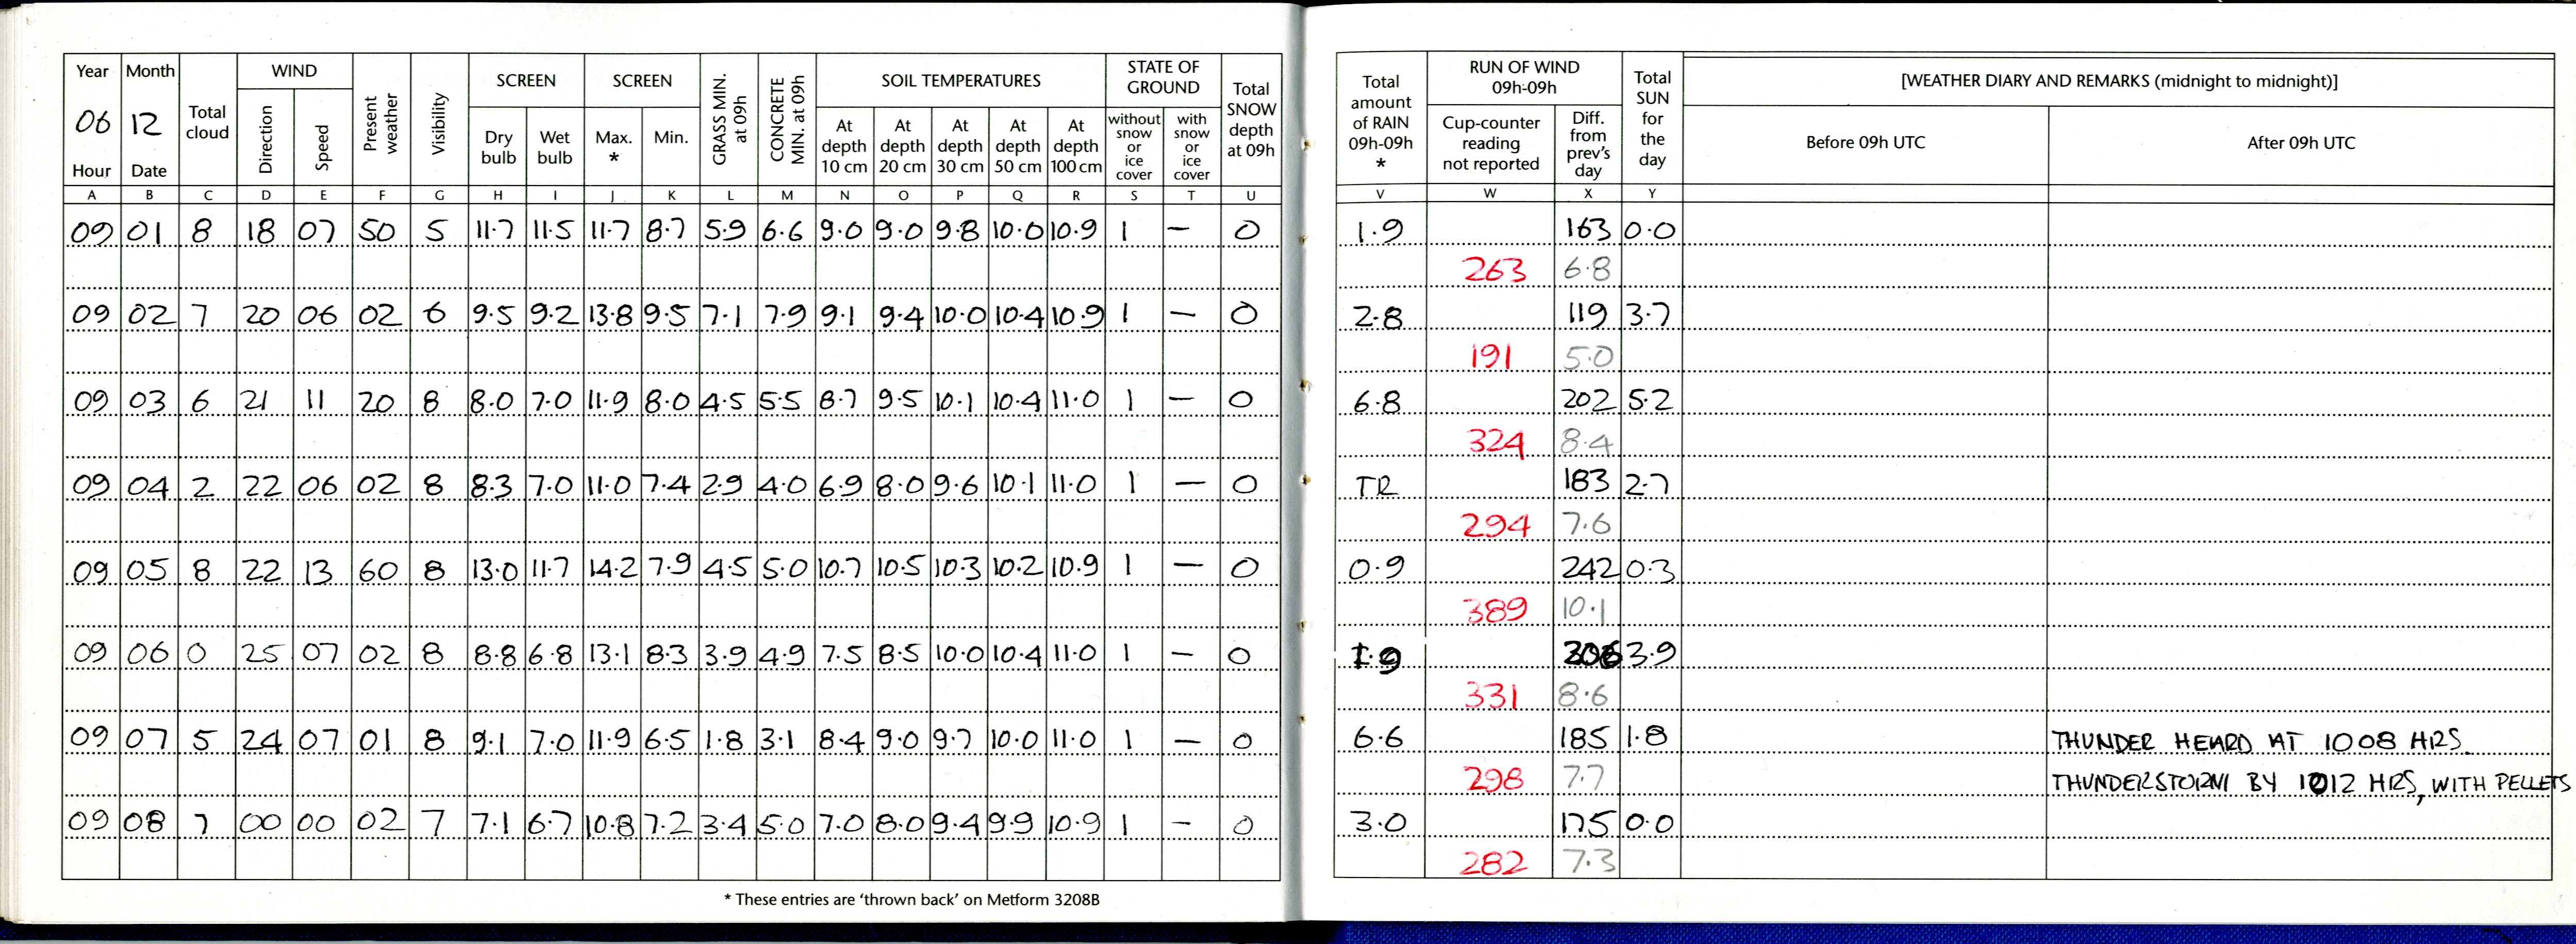 Year Month Total cloud WIND Present weather Visibility SCREEN SCREEN GRASS MIN. at 09h CONCRETE MIN. at 09h SOIL TEMPERATURES STATE OF GROUND Total SNOW depth at 09h Total amount of RAIN 09h-09h * RUN OF WIND 09h-09h Total SUN for the day [WEATHER DIARY AND REMARKS (midnight to midnight)]
06 12 Direction Speed Dry bulb Wet bulb Max. * Min. At depth 10 cm At depth 20 cm At depth 30 cm At depth 50 cm At depth 100 cm without snow or ice cover with snow or ice cover Cup-counter reading not reported Diff. from prev's day Before 09h UTC After 09h UTC
Hour Date
A B C D E F G H I J K L M N O P Q R S T U V W X Y
09 01 8 18 07 50 5 11.7 11.5 11.7 8.7 5.9 6.6 9.0 9.0 9.8 10.0 10.9 1 — 0 1.9 163 0.0
263 6.8
09 02 7 20 06 02 6 9.5 9.2 13.8 9.5 7.1 7.9 9.1 9.4 10.0 10.4 10.9 1 — 0 2.8 119 3.7
191 5.0
09 03 6 21 11 20 8 8.0 7.0 11.9 8.0 4.5 5.5 8.7 9.5 10.1 10.4 11.0 1 — 0 6.8 202 5.2
324 8.4
09 04 2 22 06 02 8 8.3 7.0 11.0 7.4 2.9 4.0 6.9 8.0 9.6 10.1 11.0 1 — 0 TR 183 2.7
294 7.6
09 05 8 22 13 60 8 13.0 11.7 14.2 7.9 4.5 5.0 10.7 10.5 10.3 10.2 10.9 1 — 0 0.9 242 0.3
389 10.1
09 06 0 25 07 02 8 8.8 6.8 13.1 8.3 3.9 4.9 7.5 8.5 10.0 10.4 11.0 1 — 0 1.9 206 3.9
331 8.6
09 07 5 24 07 01 8 9.1 7.0 11.9 6.5 1.8 3.1 8.4 9.0 9.7 10.0 11.0 1 — 0 6.6 185 1.8 THUNDER HEARD AT 1008 HRS.
298 7.7 THUNDERSTORM BY 1012 HRS, WITH PELLETS
09 08 7 00 00 02 7 7.1 6.7 10.8 7.2 3.4 5.0 7.0 8.0 9.4 9.9 10.9 1 — 0 3.0 175 0.0
282 7.3
* These entries are ‘thrown back’ on Metform 3208B